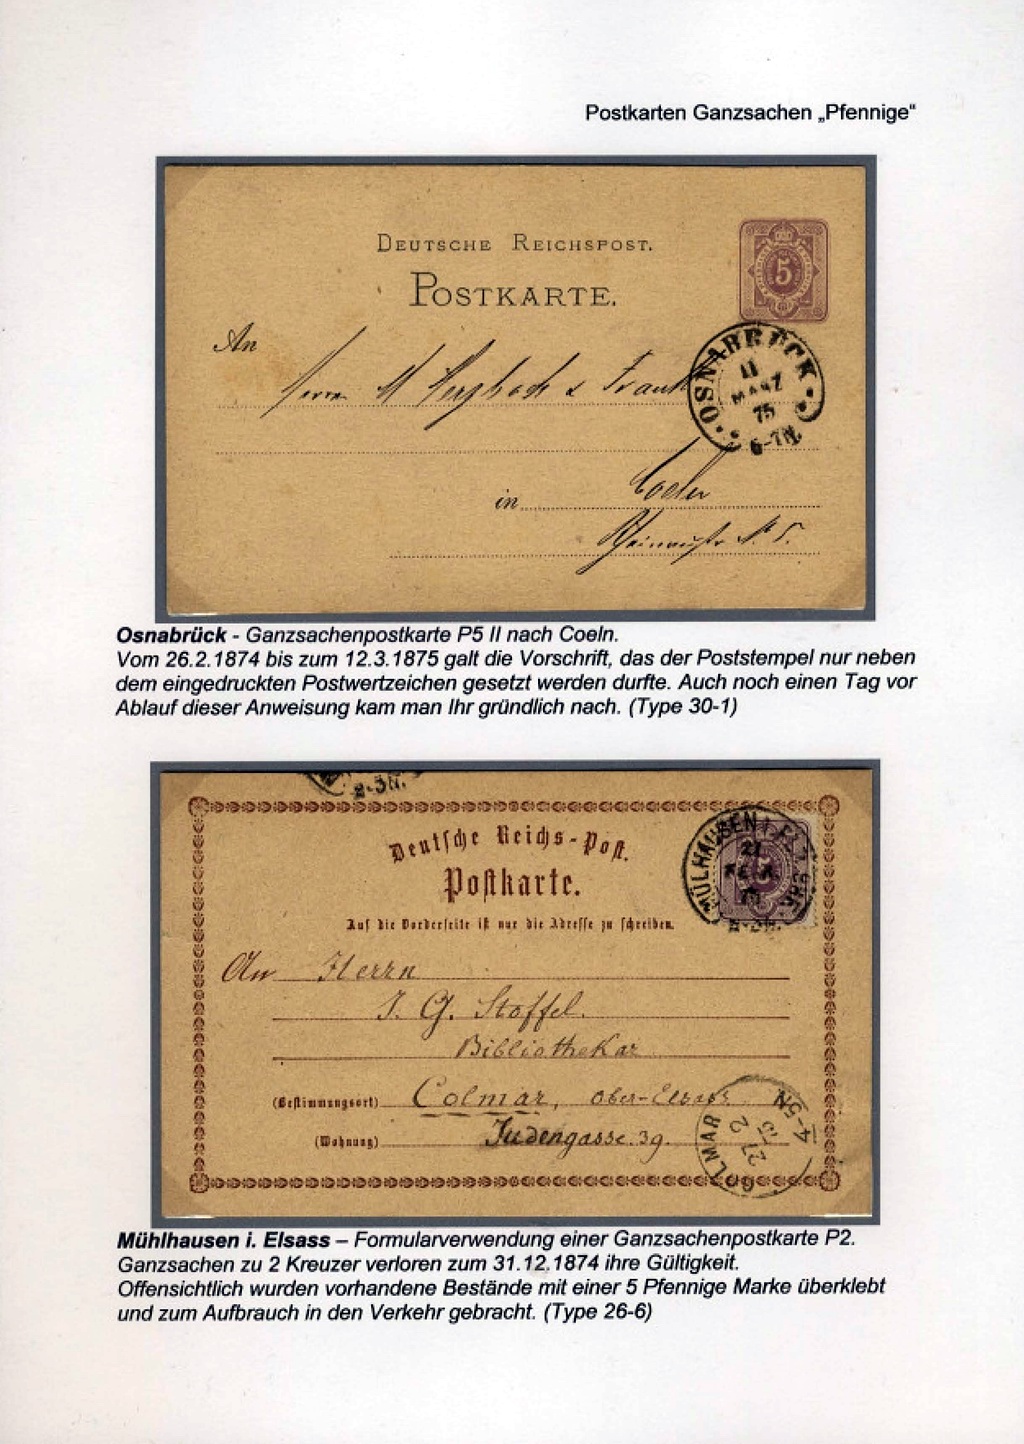 Postkarten Ganzsachen „Pfennige“
DEUTSCHE REICHSPOST.
POSTKARTE.
5
An
Herrn M Herzbach & Frank
OSNABRÜCK
11
MÄRZ
75
6-7N.
in Coeln
5.
Osnabrück - Ganzsachenpostkarte P5 II nach Coeln.
Vom 26.2.1874 bis zum 12.3.1875 galt die Vorschrift, das der Poststempel nur neben
dem eingedruckten Postwertzeichen gesetzt werden durfte. Auch noch einen Tag vor
Ablauf dieser Anweisung kam man Ihr gründlich nach. (Type 30-1)
2-3N.
Deutsche Reichs-Post.
Postkarte.
Auf die Vorderseite ist nur die Adresse zu schreiben.
MÜLHAUSEN i. ELSASS
27
75
2-3N.
5
An Herrn
J. G. Stoffel.
Bibliothekar
(Bestimmungsort) Colmar, Ober-Elsass.
(Wohnung) Judengasse. 39.
COLMAR
27 2
75
4-5N
Mühlhausen i. Elsass – Formularverwendung einer Ganzsachenpostkarte P2.
Ganzsachen zu 2 Kreuzer verloren zum 31.12.1874 ihre Gültigkeit.
Offensichtlich wurden vorhandene Bestände mit einer 5 Pfennige Marke überklebt
und zum Aufbrauch in den Verkehr gebracht. (Type 26-6)